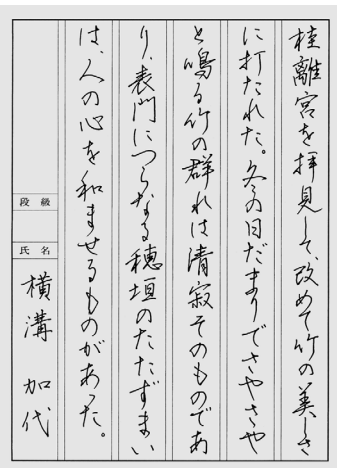 桂離宮を拝見して、改めて竹の美しさ
に打たれた。冬の日だまりでさやさや
と鳴る竹の群れは清寂そのものであ
り、表門につらなる穂垣のたたずまい
は、人の心を和ませるものがあった。
段級
氏名
横溝 加代